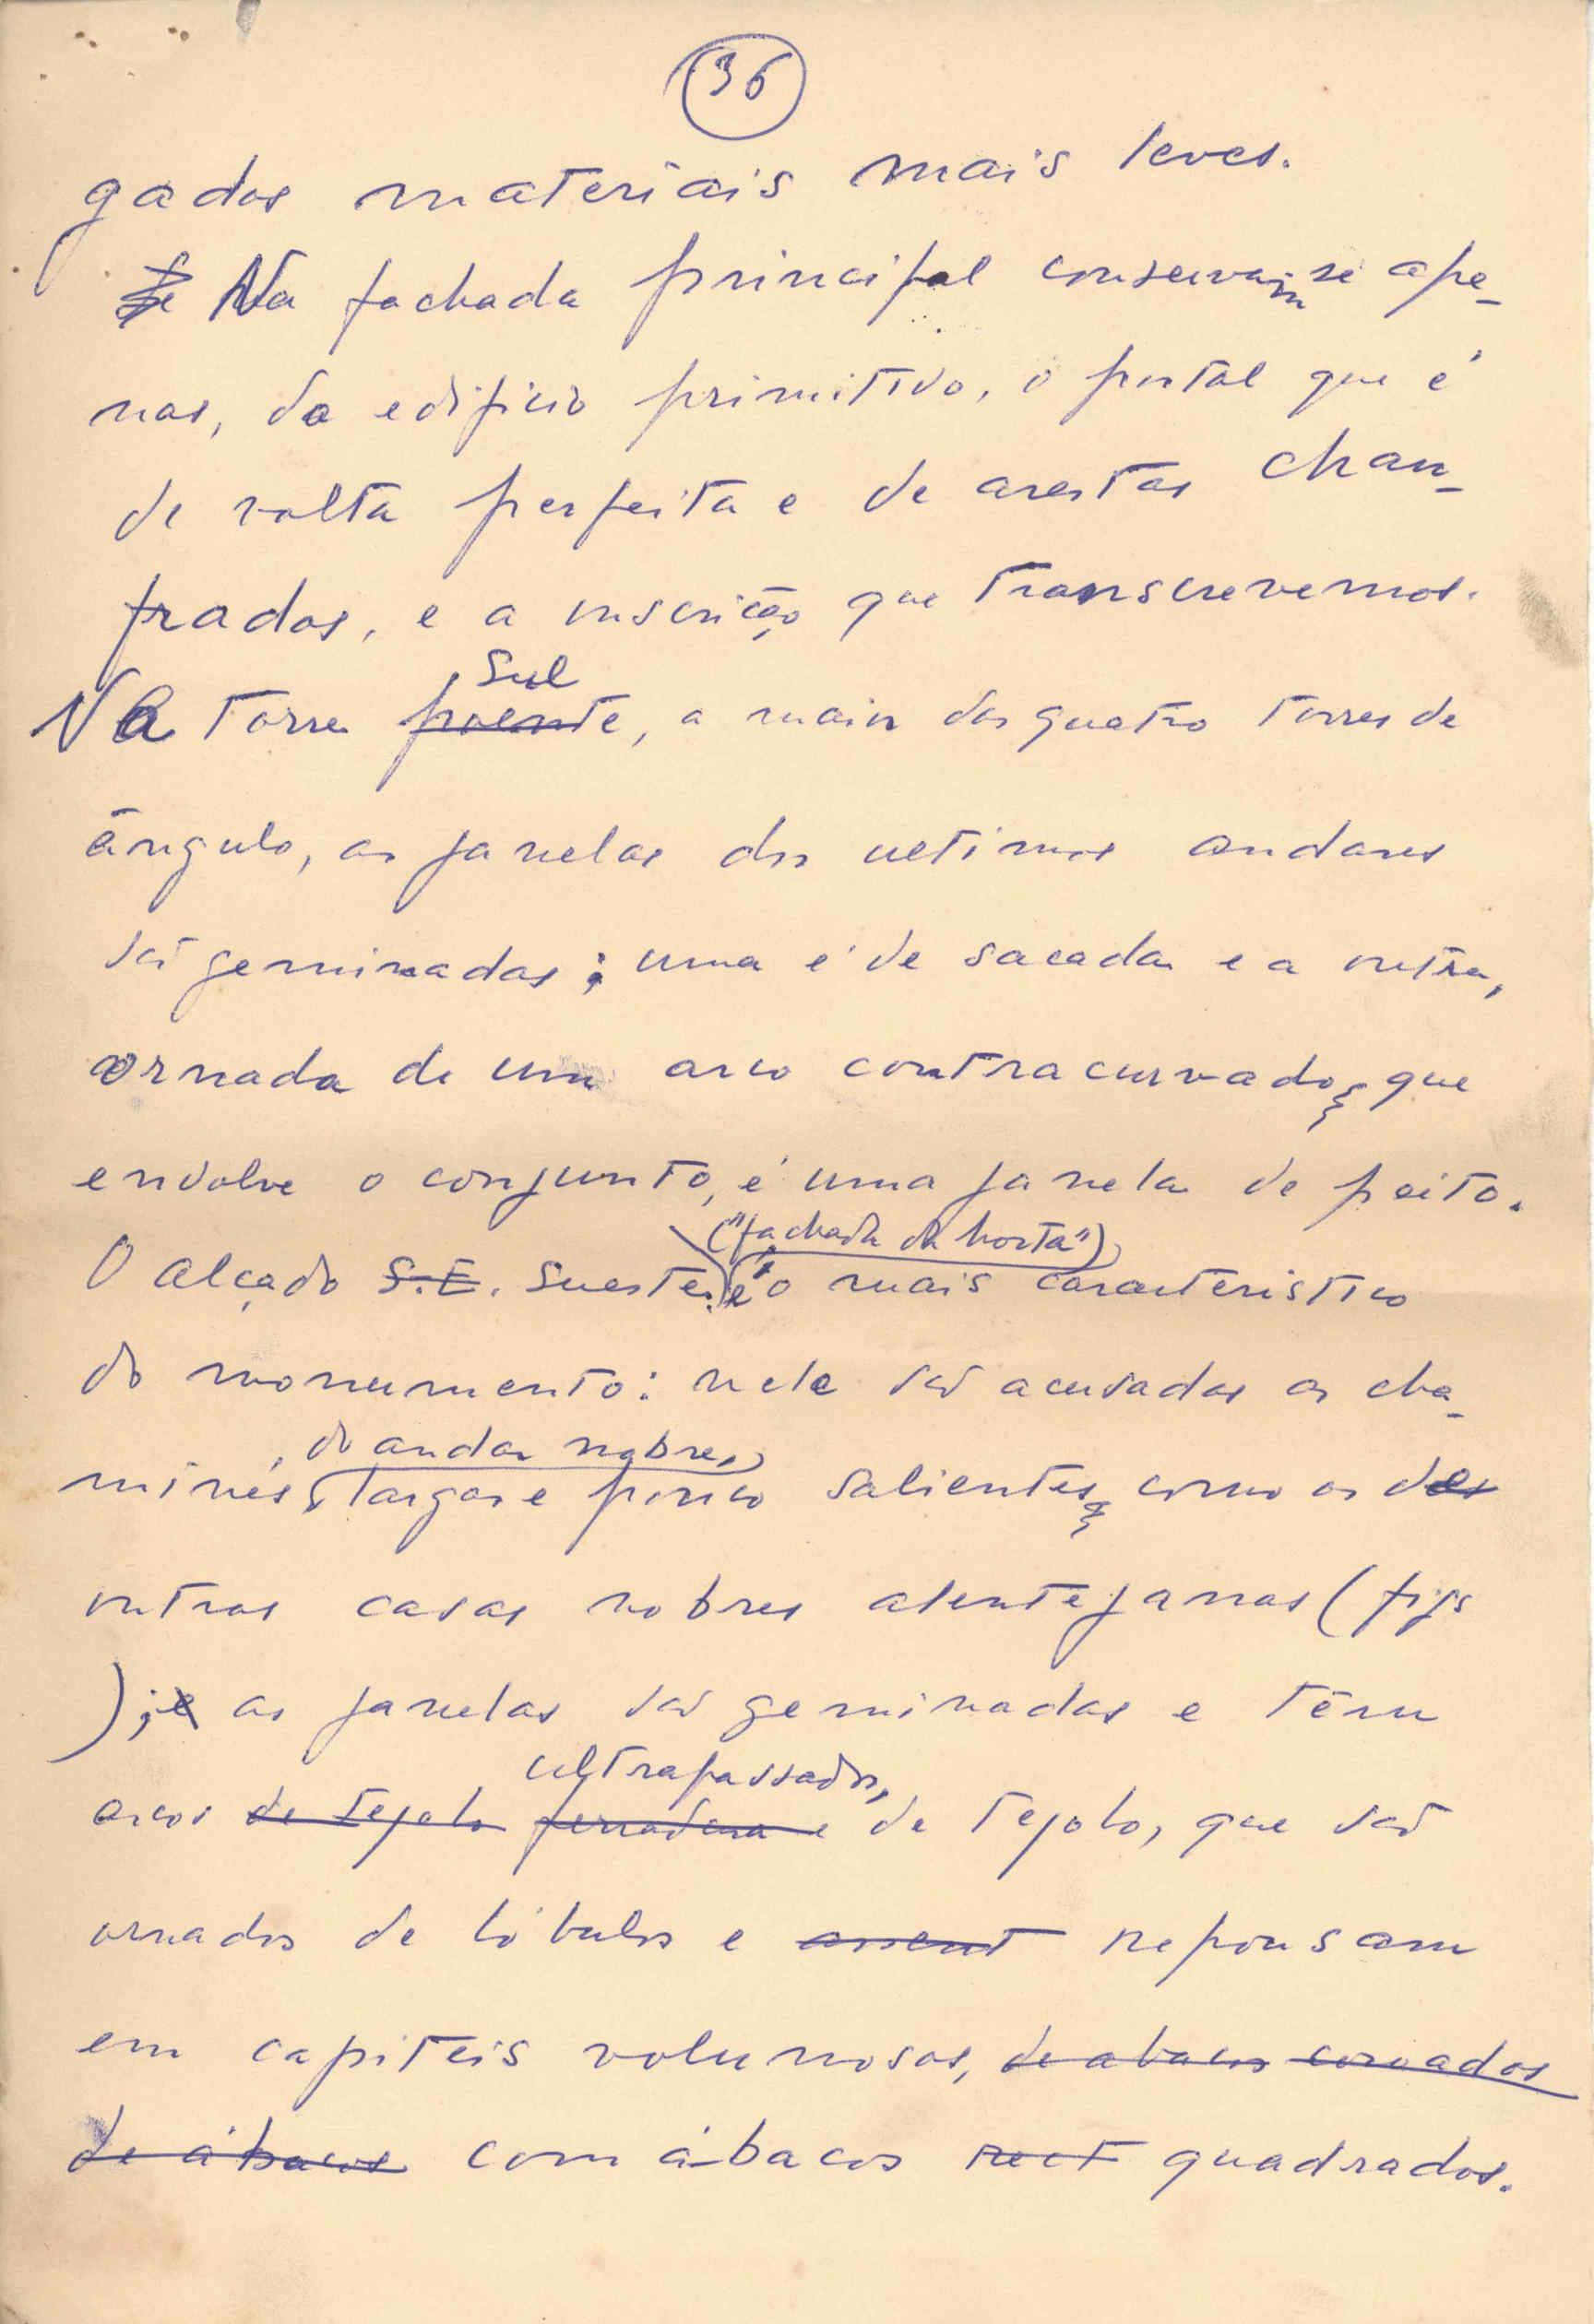 36
gados materiais mais leves.
Na fachada principal conservam-se ape-
nas, do edificio primitivo, o portal que é
de volta perfeita e de arestas chan-
fradas, e a inscrição que transcrevemos.
sul
Na torre poente, a maior das quatro torres de
ângulo, as janelas dos ultimos andares
são geminadas; uma é de sacada e a outra,
ornada de um arco contracurvado, que
envolve o conjunto, é uma janela de peito.
("fachada da horta")
O alçado S.E. sueste é o mais caracteristico
do monumento: nele são acusadas as cha-
do andar nobre,
minés, largas e pouco salientes, como as de
outras casas nobres alentejanas (figs
); as janelas são geminadas e têm
ultrapassados,
arcos de tejolo ferradura e de tejolo, que são
ornados de lóbulos e assent repousam
em capiteis volumosos, de abacos coroados
de ábacos com ábacos rect quadrados.